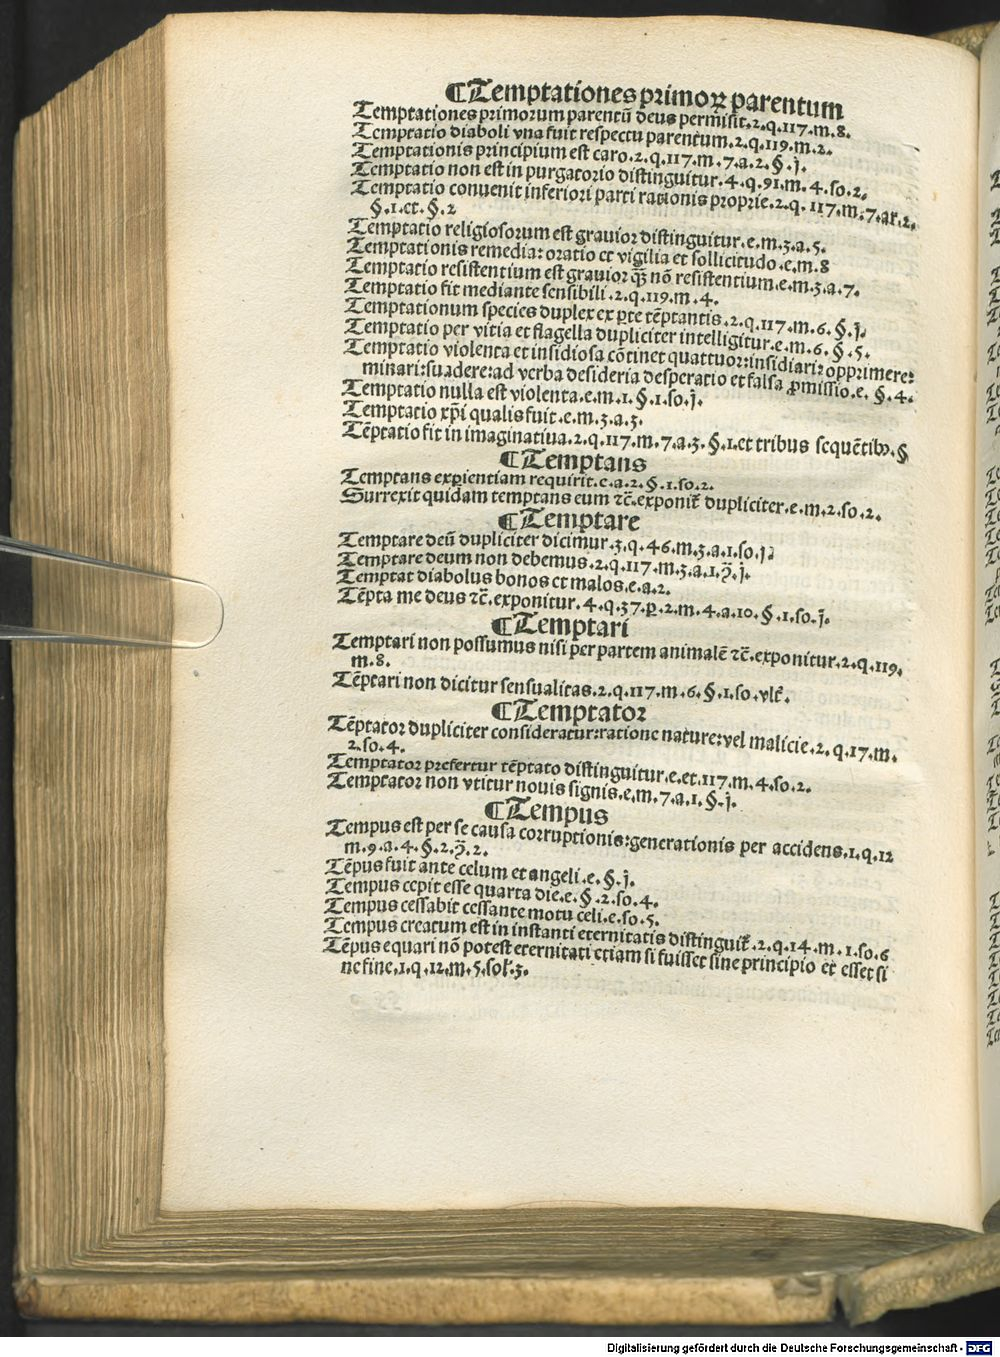 ¶Temptationes primoꝝ parentum
Temptationes primorum parentū deus permisit.2.q.117.m.8.
Temptatio diaboli vna fuit respectu parentum.2.q.119.m.2.
Temptationis principium est caro.2.q.117.m.7.a.2.§.j.
Temptatio non est in purgatorio distinguitur.4.q.91.m.4.so.2.
Temptatio conuenit inferiori parti rationis proprie.2.q.117.m.7.ar.2.
§.1.et.§.2
Temptatio religiosorum est grauior distinguitur.e.m.3.a.5.
Temptationis remedia: oratio et vigilia et sollicitudo.e.m.8
Temptatio resistentium est grauior q̄ȝ nō resistentium.e.m.3.a.7.
Temptatio fit mediante sensibili.2.q.119.m.4.
Temptationum species duplex ex ꝑte tēptantis.2.q.117.m.6.§.j.
Temptatio per vitia et flagella dupliciter intelligitur.e.m.6.§.5.
Temptatio violenta et insidiosa cōtinet quattuor:insidiari:opprimere:
minari:suadere:ad verba desideria desperatio et falsa ꝓmissio.e.§.4.
Temptatio nulla est violenta.e.m.1.§.1.so.j.
Temptatio xp̄i qualis fuit.e.m.3.a.3.
Tēptatio fit in imaginatiua.2.q.117.m.7.a.3.§.1.et tribus sequētibꝰ.§
¶Temptans
Temptans exꝑientiam requirit.e.a.2.§.1.so.2.
Surrexit quidam temptans eum ⁊c̄.exponit᷑ dupliciter.e.m.2.so.2.
¶Temptare
Temptare deū dupliciter dicimur.3.q.46.m.3.a.1.so.j.
Temptare deum non debemus.2.q.117.m.3.a.1.ꝟ.j.
Temptat diabolus bonos et malos.e.a.2.
Tēpta me deus ⁊c̄.exponitur.4.q.37.p̄.2.m.4.a.10.§.1.so.j.
¶Temptari
Temptari non possumus nisi per partem animalē ⁊c̄.exponitur.2.q.119.
m.8.
Tēptari non dicitur sensualitas.2.q.117.m.6.§.1.so.vlt̄.
¶Temptator
Tēptator dupliciter consideratur:ratione nature:vel malicie.2.q.17.m.
2.so.4.
Temptator prefertur tēptato distinguitur.e.et.117.m.4.so.2.
Temptator non vtitur nouis signis.e.m.7.a.1.§.j.
¶Tempus
Tempus est per se causa corruptionis:generationis per accidens.1.q.12
m.9.a.4.§.2.ꝟ.2.
Tēpus fuit ante celum et angeli.e.§.j.
Tempus cepit esse quarta die.e.§.2.so.4.
Tempus cessabit cessante motu celi.e.so.5.
Tempus creatum est in instanti eternitatis distinguit᷑.2.q.14.m.1.so.6
Tēpus equari nō potest eternitati etiam si fuisset sine principio et esset si
ne fine.1.q.12.m.5.sol᷑.3.
Digitalisierung gefördert durch die Deutsche Forschungsgemeinschaft - DFG